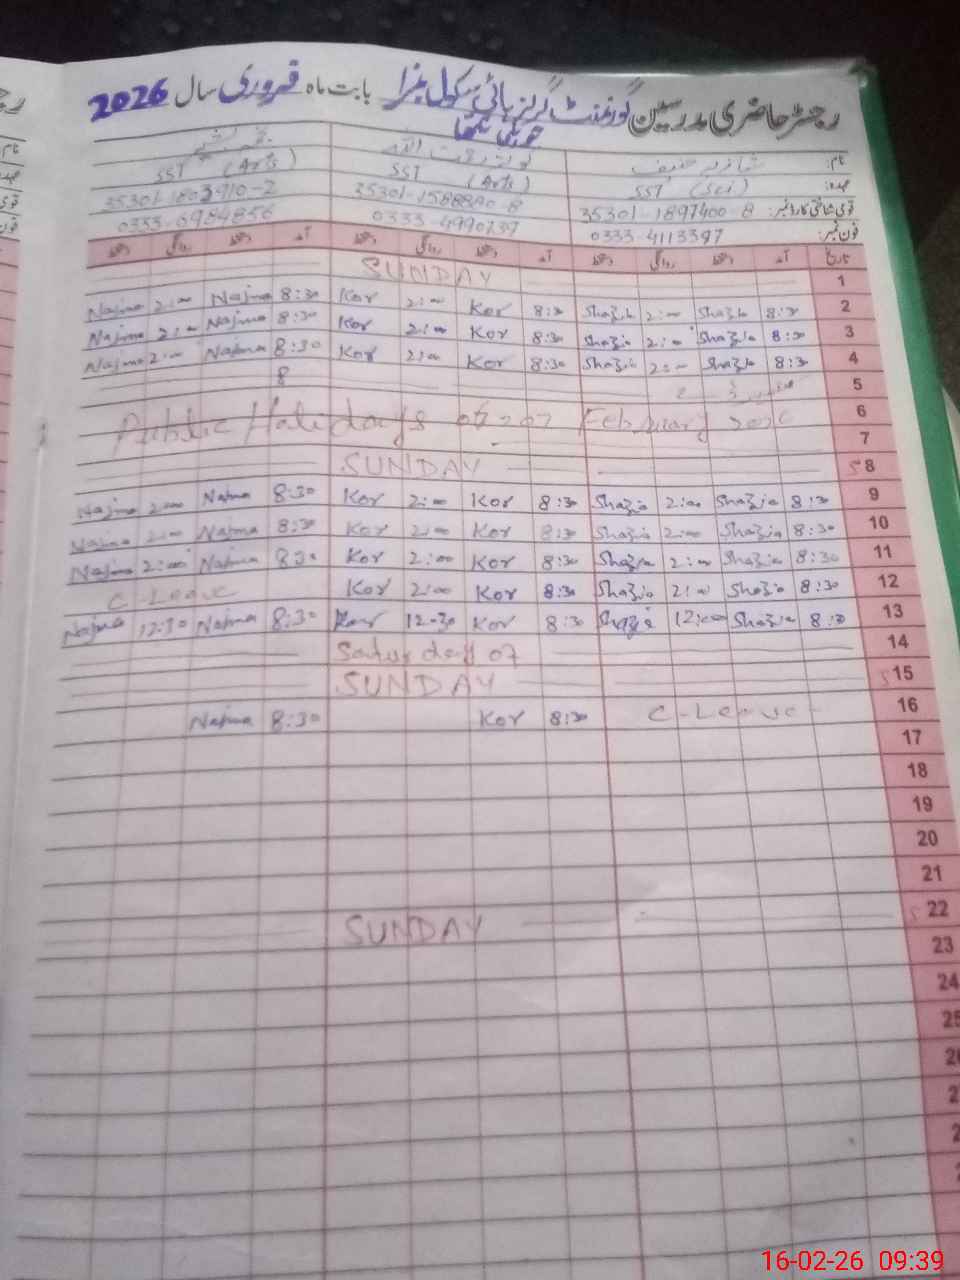 رجسٹر حاضری مدرسین گورنمنٹ گرلز ہائی سکول ہنرا بابت ماہ فروری سال 2026
نام: شازیہ حنیف
عہدہ: SST (Sci) SST (Arts) SST (Arts)
قومی شناختی کارڈ نمبر: 35301-1897400-8 35301-1588890-8 35301-1803910-2
فون نمبر: 0333-4113397 0333-4990739 0333-6984856
تاریخ آمد دستخط روانگی دستخط آمد دستخط روانگی دستخط آمد دستخط روانگی دستخط
SUNDAY 1
Najma 2:00 Najma 8:30 Kor 2:00 Kor 8:30 Shazia 2:00 Shazia 8:30 2
Najma 2:00 Najma 8:30 Kor 2:00 Kor 8:30 Shazia 2:00 Shazia 8:30 3
Najma 2:00 Najma 8:30 Kor 2:00 Kor 8:30 Shazia 2:00 Shazia 8:30 4
8 5
Public Holidays 06 07 February 2026 6
7
SUNDAY S 8
Najma 2:00 Najma 8:30 Kor 2:00 Kor 8:30 Shazia 2:00 Shazia 8:30 9
Najma 2:00 Najma 8:30 Kor 2:00 Kor 8:30 Shazia 2:00 Shazia 8:30 10
Najma 2:00 Najma 8:30 Kor 2:00 Kor 8:30 Shazia 2:00 Shazia 8:30 11
C-Leave Kor 2:00 Kor 8:30 Shazia 2:00 Shazia 8:30 12
Najma 12:30 Najma 8:30 Kor 12-30 Kor 8:30 Shazia 12:00 Shazia 8:30 13
Saturday 07 14
SUNDAY S 15
Najma 8:30 Kor 8:30 C-Leave 16
17
18
19
20
21
SUNDAY S 22
23
24
16-02-26 09:39